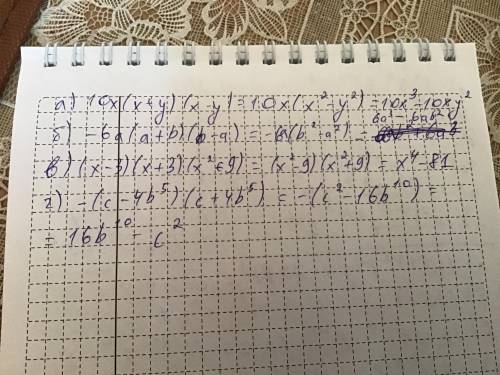 а) 10x(x+y)(x-y)=10x(x²-y²)=10x³-10xy²
б) -6a(a+b)(b-a)= -6a(b²-a²)= 6a³-6ab²
в) (x-3)(x+3)(x²+9)=(x²-9)(x²+9)=x⁴-81
г) -(c-4b⁵)(c+4b⁵)= -(c²-16b¹⁰)=
=16b¹⁰-c²